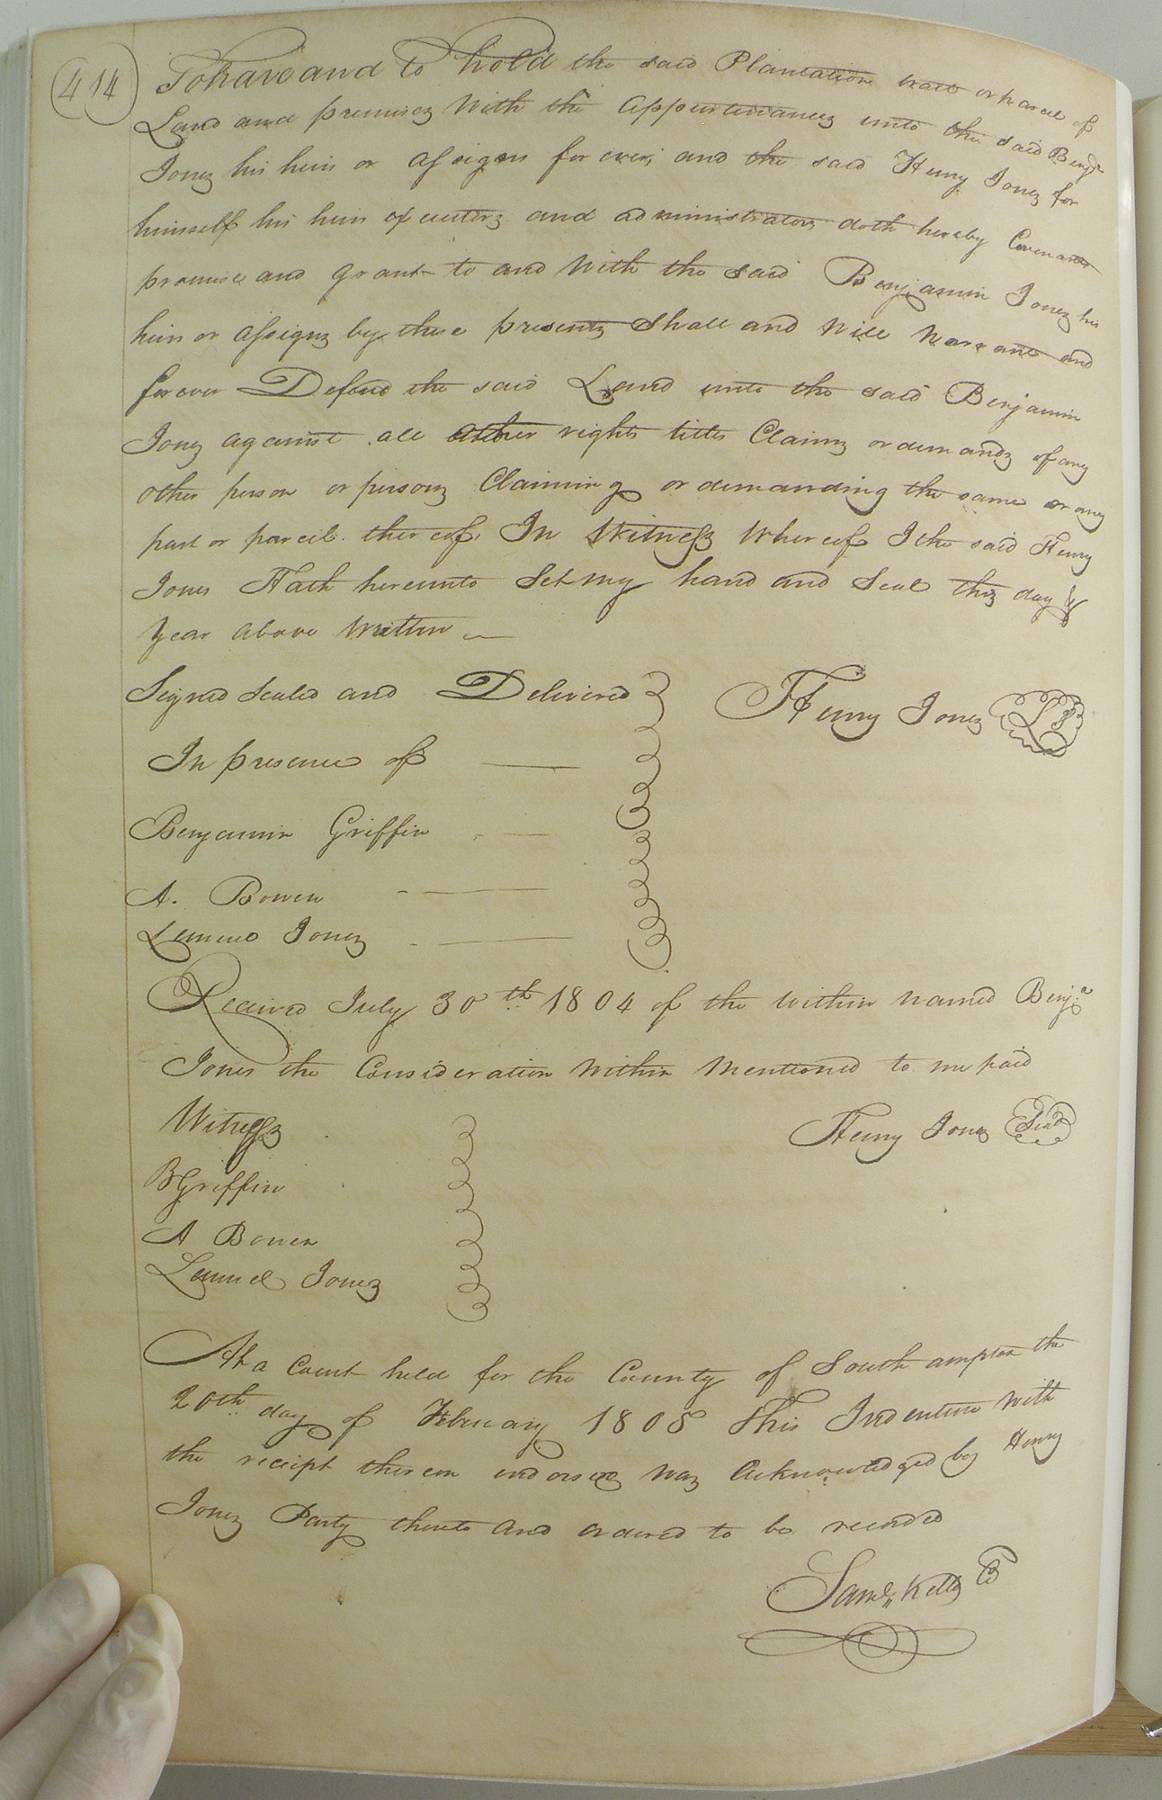 414
To have and to hold the said Plantation tract or parcel of
Land and premises With the Appurtenances unto the said Benja
Jones his heirs or assigns for ever; and the said Henry Jones for
himself his heirs executors and administrators doth hereby Covenant
promise and grant to and With the said Benjamin Jones his
heirs or assigns by these presents Shall and Will Warrant and
forever Defend the said Land unto the said Benjamin
Jones against all other rights titles Claims or demands of any
other person or persons Claiming or demanding the same or any
part or parcel thereof. In Witness Whereof I the said Henry
Jones Hath hereunto Set my hand and Seal this day &
Year above Written
Signed Sealed and Delivered
Henry Jones LS
In presence of
Benjamin Griffin
A. Bowen
Lemuel Jones
Received July 30th 1804 of the within named Benja
Jones the Consideration Within Mentioned to me paid
Witness
Henry Jones Seal
BGriffin
A Bowen
Lemuel Jones
At a Court held for the County of Southampton the
20th day of February 1805 This Indenture With
the receipt thereon endorsed was Acknowledged by Henry
Jones Party thereto and ordered to be recorded
Saml Kello